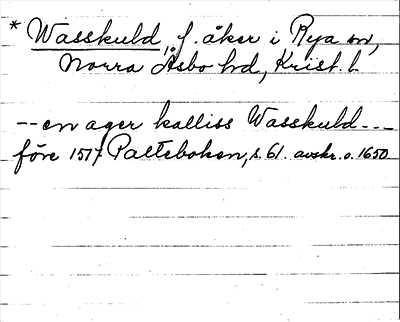 * Wasskuld, f. åker i Rya sn,
Norra Åsbo hd, Krist. l.
-- en ager kalliss Wasskuld ---
före 1517 Palteboken, s. 61. avskr. o. 1650